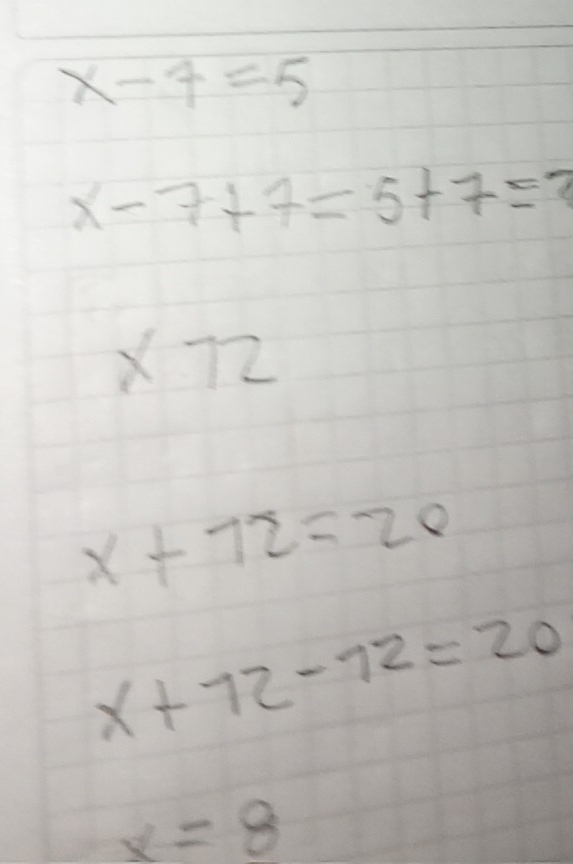 x-7=5
x-7+7=5+7=
x 12
x+12=20
x+12-12=20
x=8